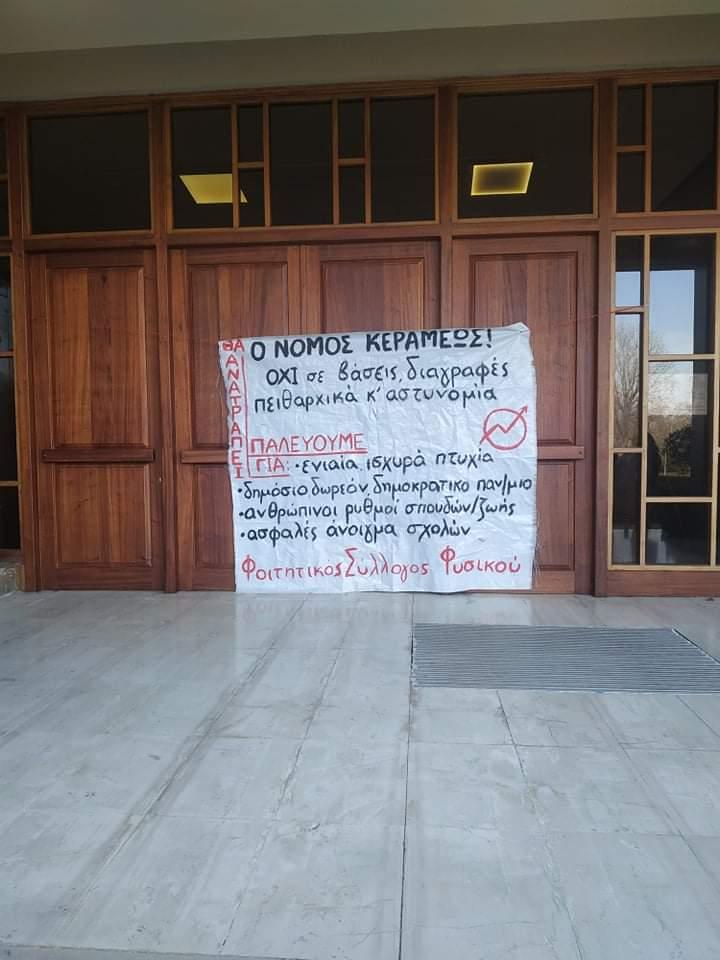 ΘΑ ΑΝΑΤΡΑΠΕΙ
Ο ΝΟΜΟΣ ΚΕΡΑΜΕΩΣ!
ΟΧΙ σε βάσεις, διαγραφές
πειθαρχικά κ' αστυνομία
ΠΑΛΕΥΟΥΜΕ
ΓΙΑ: • ενιαία, ισχυρά πτυχία
• δημόσιο δωρεάν, δημοκρατικο παν/μιο
• ανθρώπινοι ρυθμοί σπουδών/ζωής
• ασφαλές άνοιγμα σχολών
Φοιτητικος Σύλλογος Φυσικού